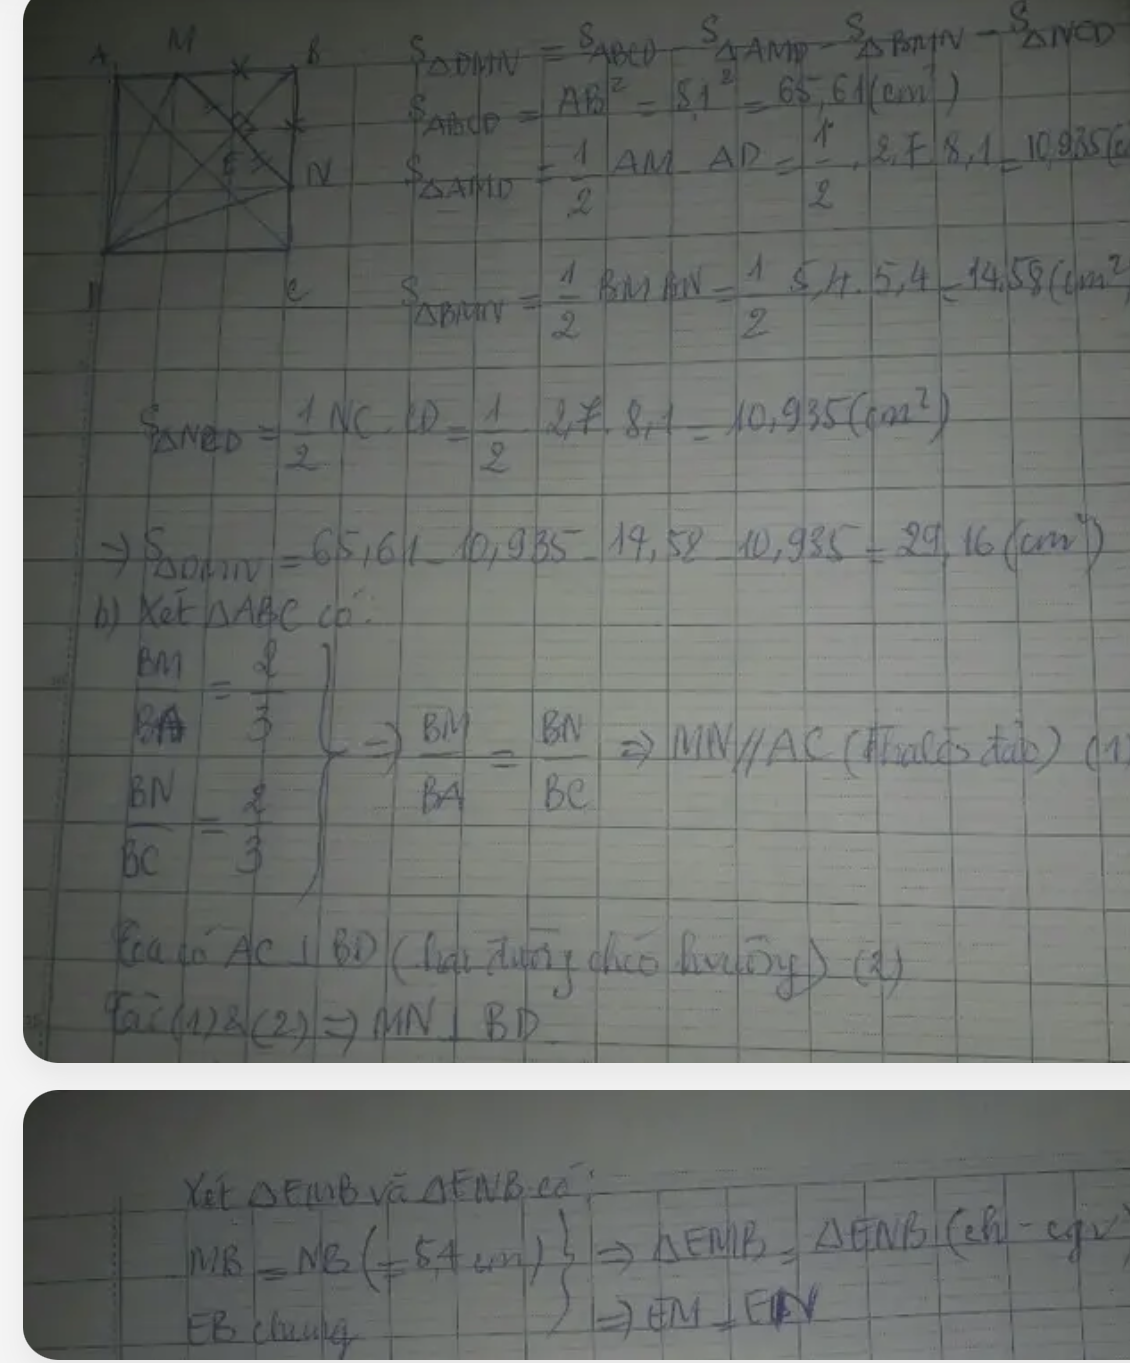 A M B
S△DMN = SABCD - S△AMD - S△BMN - S△NCD
SABCD = AB² = 8,1² = 65,61 (cm²)
E N
S△AMD = 1/2 AM . AD = 1/2 . 2,7 . 8,1 = 10,935 (c
D C
S△BMN = 1/2 BM . BN = 1/2 5,4 . 5,4 = 14,58 (cm²
S△NCD = 1/2 NC . CD = 1/2 2,7 . 8,1 = 10,935 (cm²)
=> S△DMN = 65,61 - 10,935 - 14,58 - 10,935 = 29,16 (cm²)
b) Xét △ABC có:
BM/BA = 2/3
BN/BC = 2/3
=> BM/BA = BN/BC => MN // AC (Thalès đảo) (1)
Ta có AC ⊥ BD (hai đường chéo hvuông) (2)
Từ (1) & (2) => MN ⊥ BD
Xét △EMB và △ENB có:
MB = NB (= 5,4 cm)
EB chung
=> △EMB = △ENB (ch - cgv)
=> EM = EN